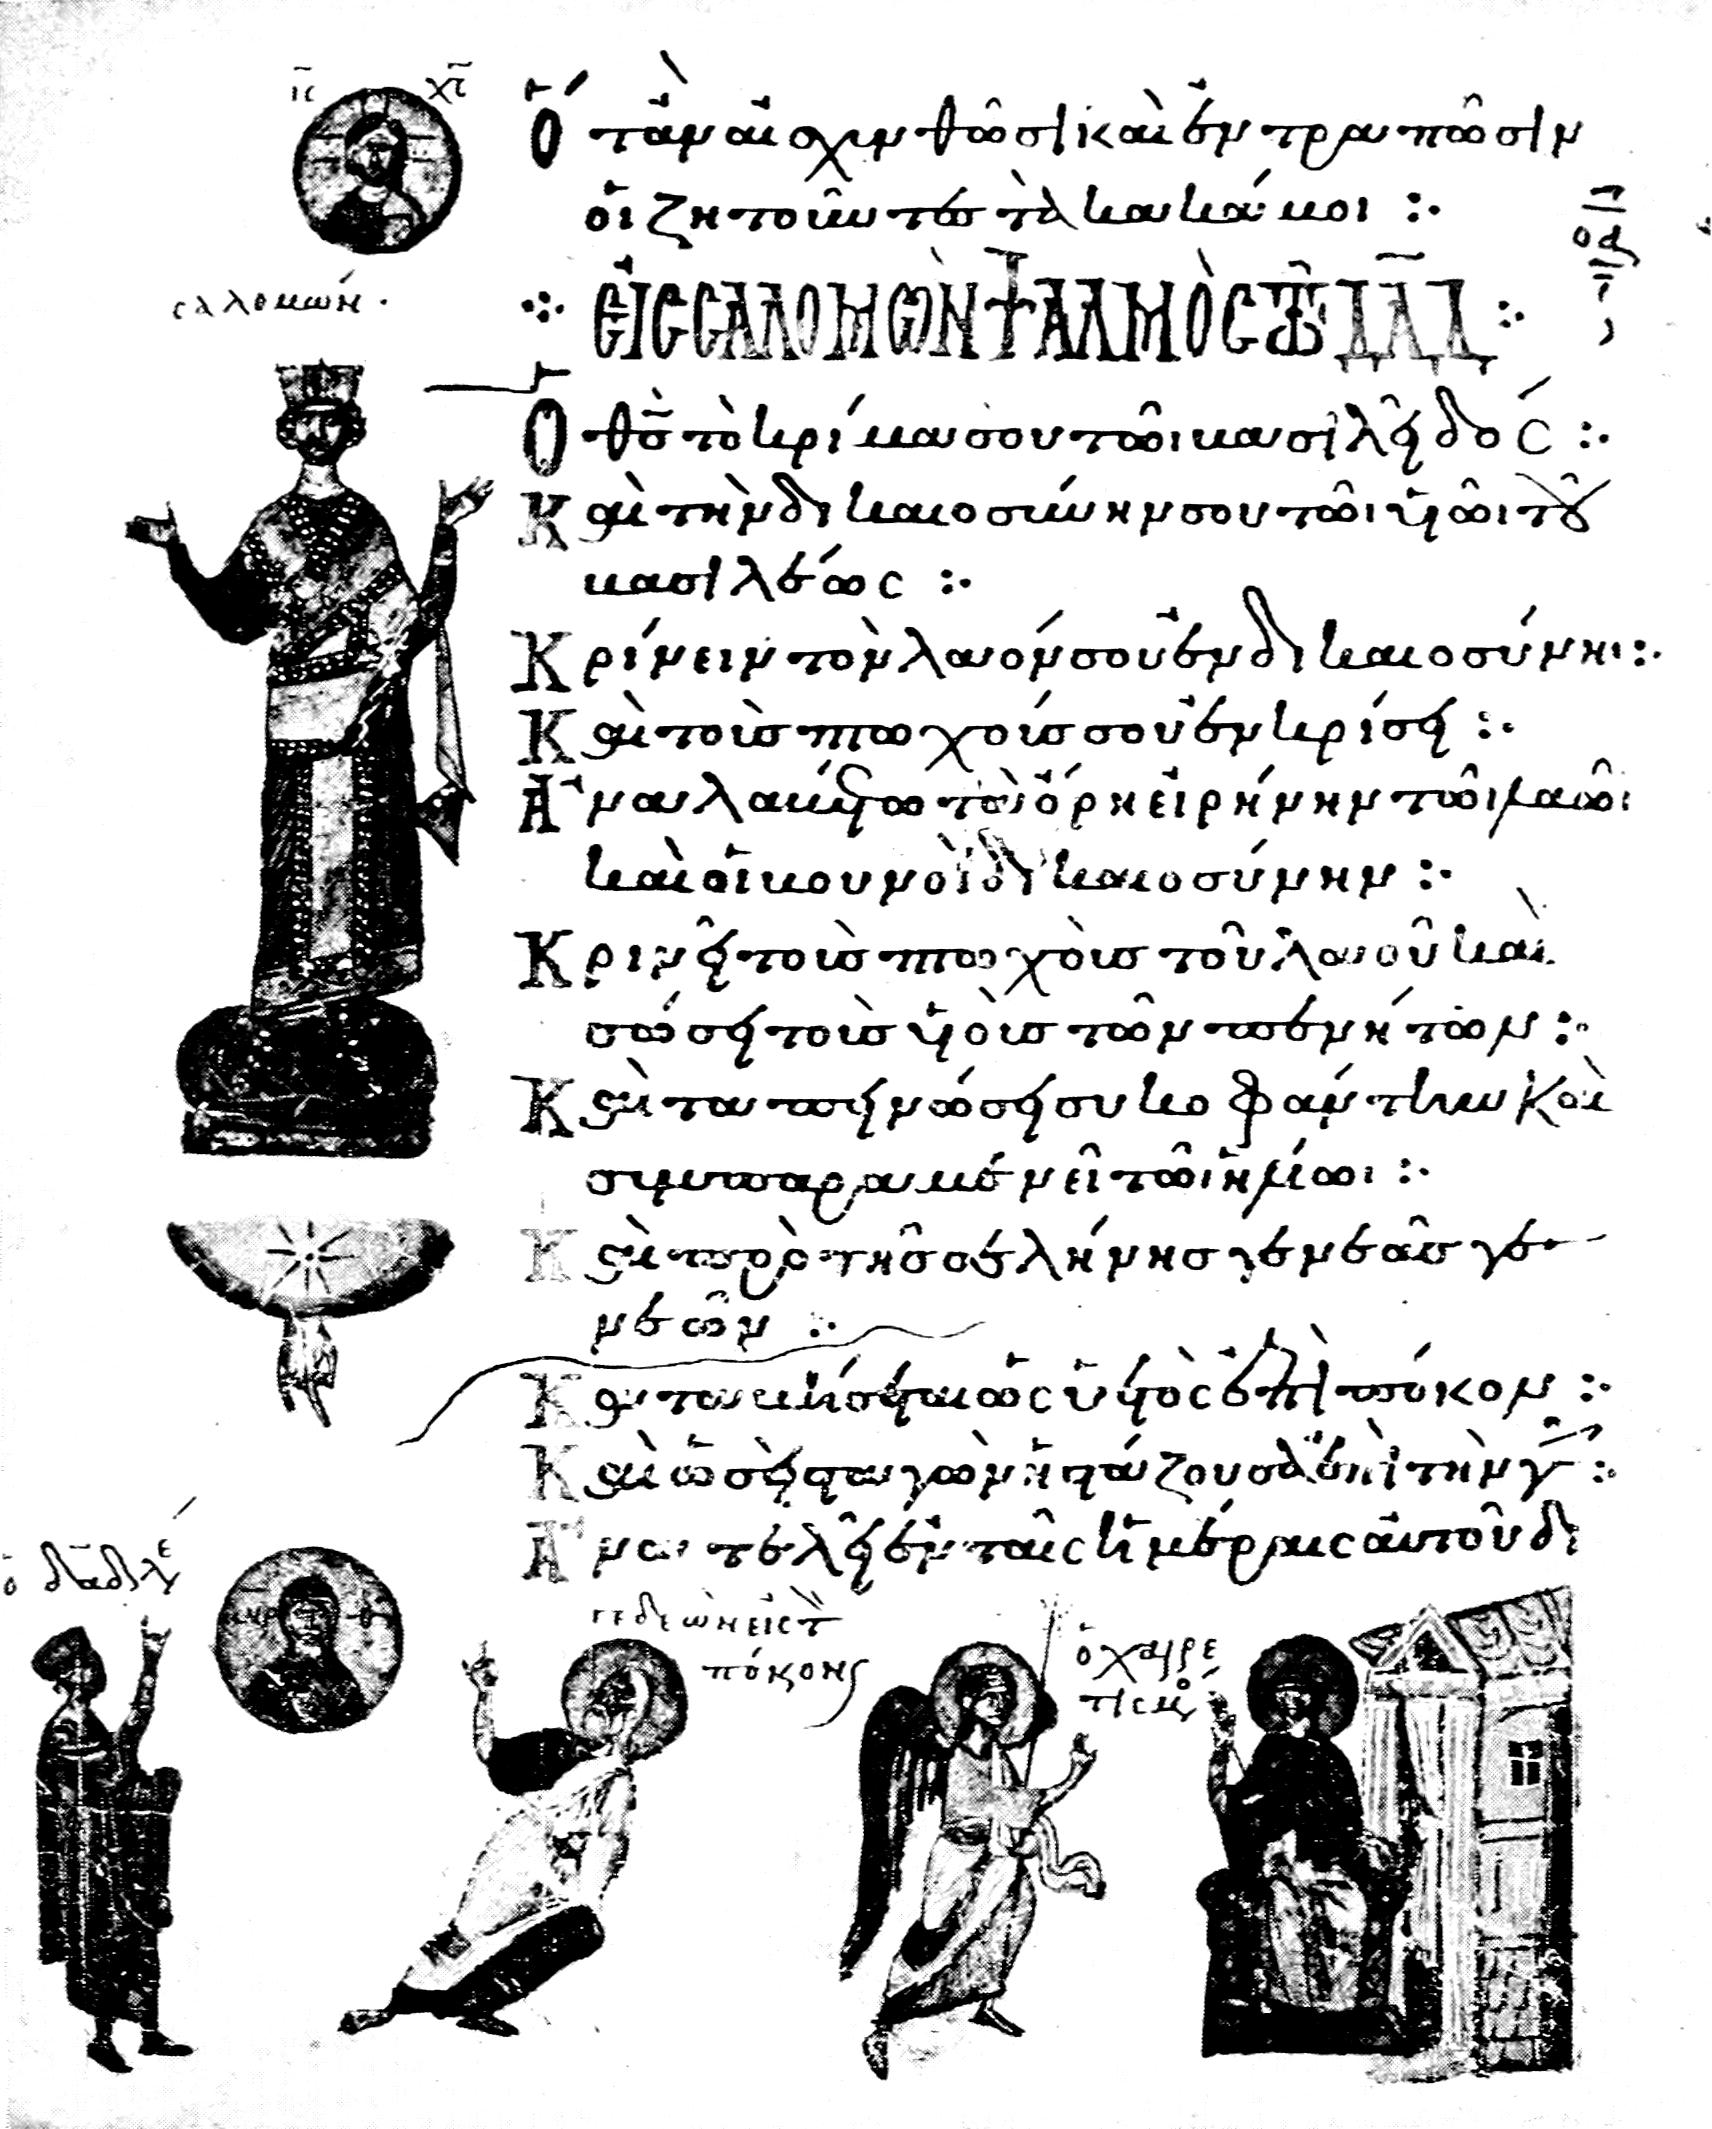 ις χς
Ὅταν αἰσχυνθῶσι καὶ ἐντραπῶσιν
οἱ ζητοῦντες τὰ κακά μοι :·
οα
σαλομών ·
:· ΕἸC CΑΛΟΜΩΝ ΨΑΛΜῸC Τῶ ΔΑΔ :·
Ὁ θς τὸ κρίμα σου τῶι βασιλεῖ δός :·
Καὶ τὴν δικαιοσύνην σου τῶι υἱῶι τοῦ
βασιλέως :·
Κρίνειν τὸν λαόν σου ἐν δικαιοσύνηι :·
Καὶ τοὺς πτωχούς σου ἐν κρίσει :·
Ἀναλαβέτω τὰ ὄρη εἰρήνην τῶι λαῶι
καὶ οἱ βουνοὶ δικαιοσύνην :·
Κρινεῖ τοὺς πτωχοὺς τοῦ λαοῦ καὶ
σώσει τοὺς υἱοὺς τῶν πενήτων :·
Καὶ ταπεινώσει συκοφάντην καὶ
συμπαραμενεῖ τῶι ἡλίωι :·
Καὶ πρὸ τῆς σελήνης γενεὰς γε
νεῶν :·
Καταβήσεται ὡς ὑετὸς ἐπὶ πόκον :·
Καὶ ὡσεὶ σταγὼν ἡ στάζουσα ἐπὶ τὴν γῆν :·
Ἀνατελεῖ ἐν ταῖς ἡμέραις αὐτοῦ δι
ὁ δαδ λέ
γεδεὼν εἰς τ
πόκον
ὁ χαιρε
τισμός